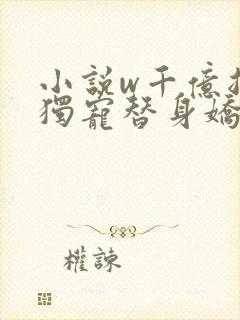 小說w千億
獨寵替身嬌
權諫